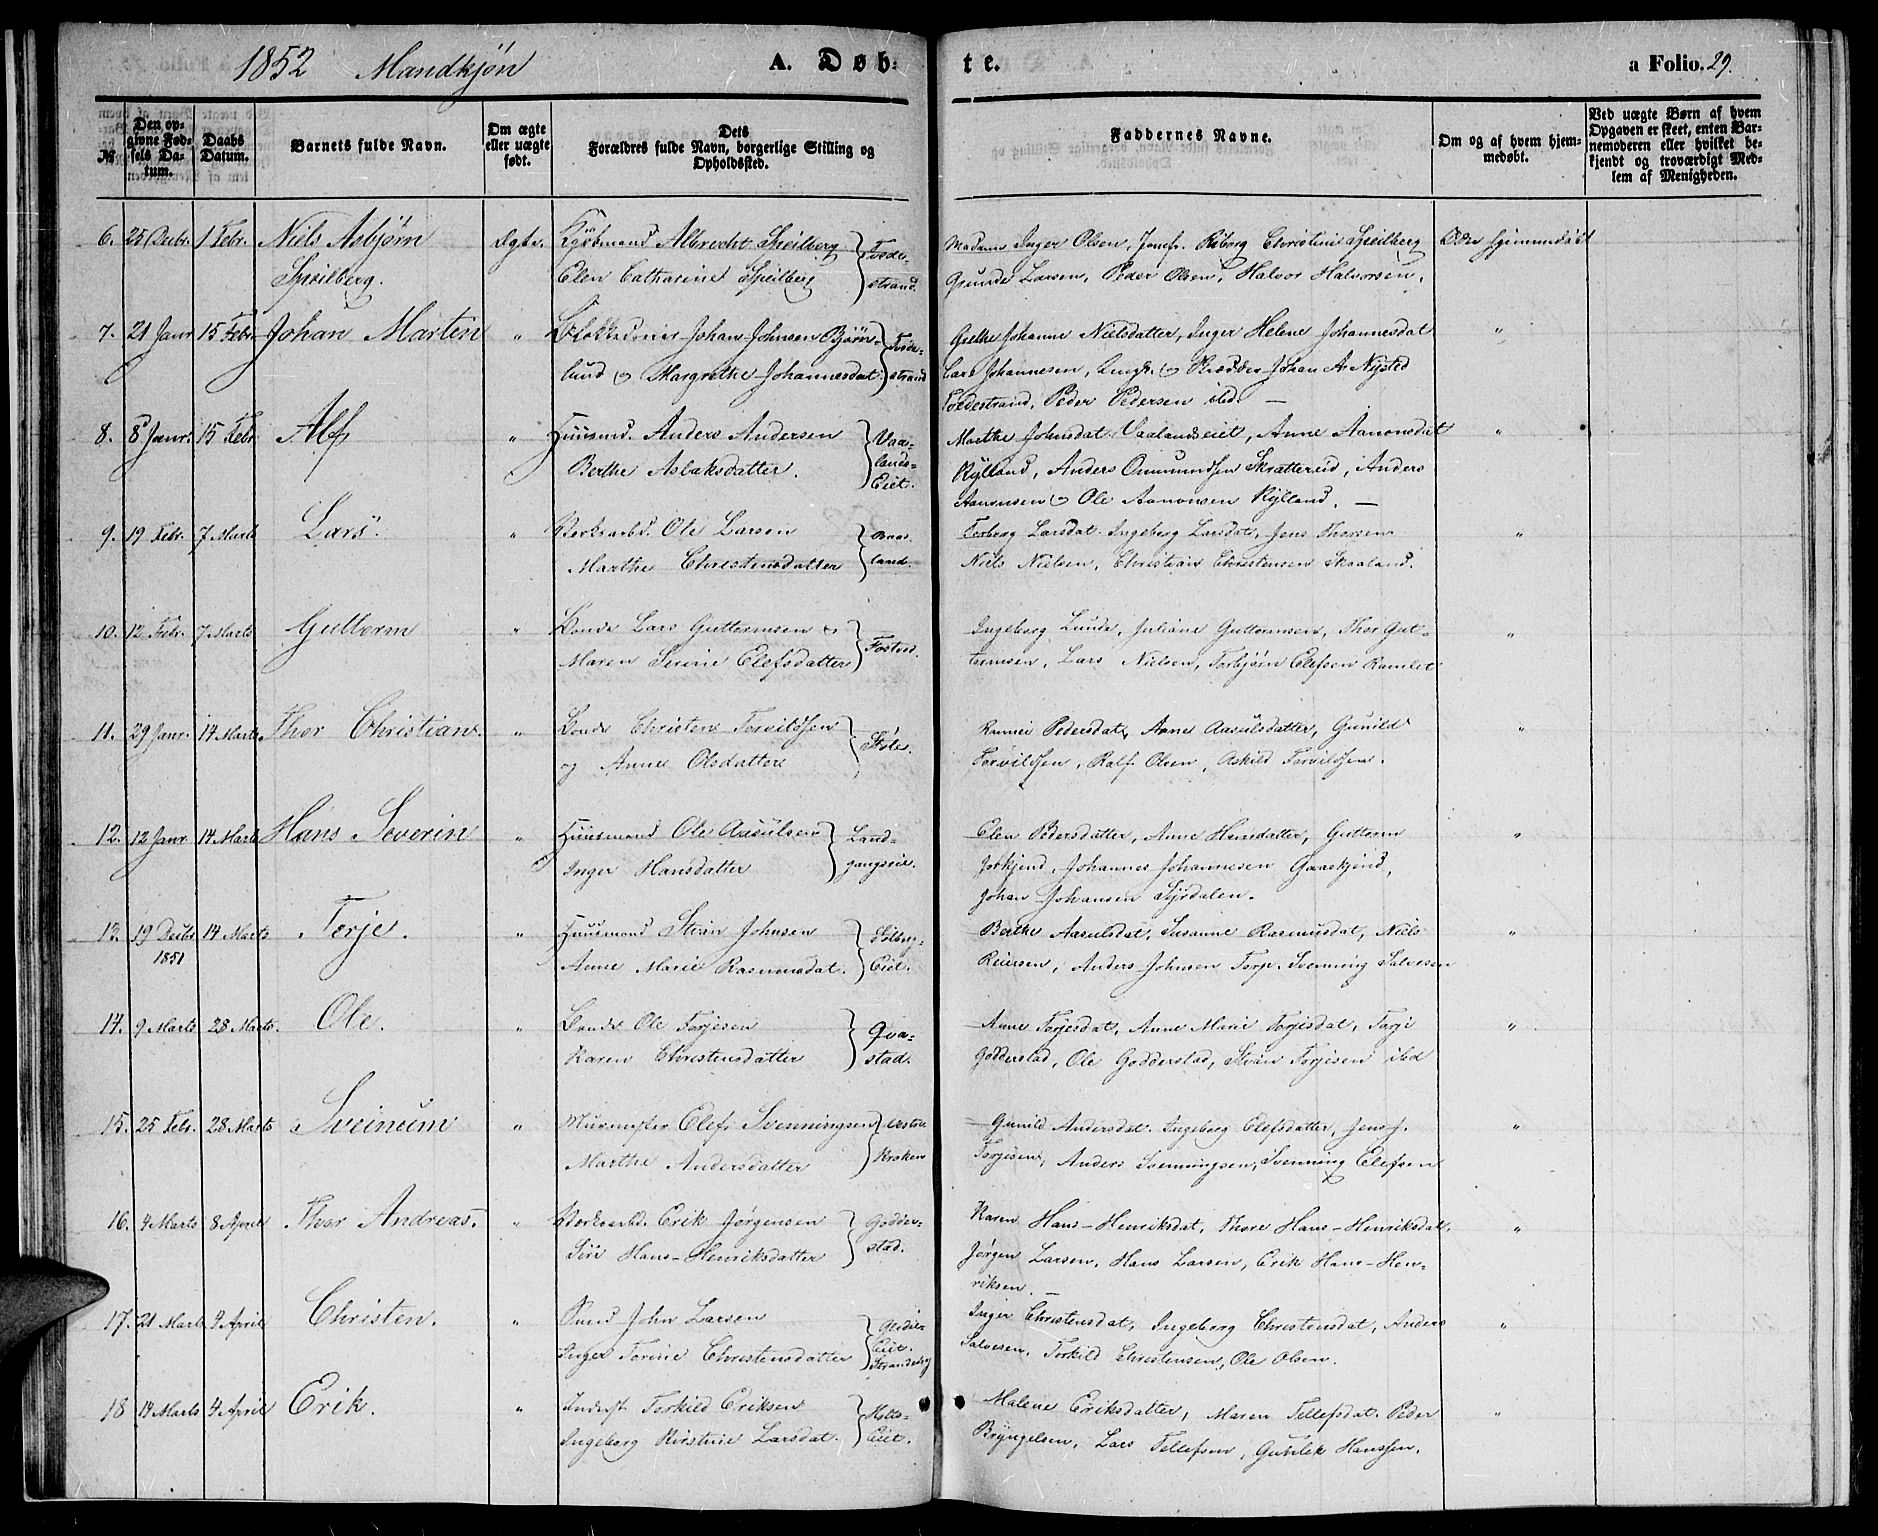 1852 Mandkjøn A. Døb- te. a Folio. 29.
No
Den opgivne Fødsels Datum.
Daabs Datum.
Barnets fulde Navn.
Om ægte eller uægte født.
Dets Forældres fulde Navn, borgerlige Stilling og Opholdssted.
Faddernes Navne.
Om og af hvem hjemmedøbt.
Ved uægte Børn af hvem Opgaven er skeet, enten Barnemoderen eller hvilket bekjendt og troværdigt Medlem af Menigheden.
6. 25 Decbr. 1 Febr. Niels Asbjørn Ægte. Kjøbmand Albrecht Speilberg Tvede- Madame Inger Olsen, Jomfr. Christine Speilberg Ei hjemmedøbt
Speilberg. Elen Catharine Speilberg strand. Gunde Larsen, Peder Olsen, Halvor Halvorsen.
7. 21 Janr 15 Febr. Johan Martin " Johan Johnsen Bjørn- Tvede- Grethe Johanne Nielsdatter, Inger Helene Johannesdat "
lund & Margrethe Johannesdat. strand Lars Johannesen, Ungk. & Skrædder Johan A. Nysted
Tvedestrand, Peder Pedersen ibid. —
8. 8 Janr. 15 Febr. Alf " Huusmd. Anders Andersen Vaa- Marthe Johnsdat. Vaalandseiet, Anne Aanonsdat "
Berthe Aslaksdatter. lands- Eiet. Rylland, Anders Ommundsen Skrattereid, Anders
Aanonsen & Ole Aanonsen Rylland. —
9. 19 Febr. 7 Marts Lars " Værksarbd. Ole Larsen Torborg Larsdat. Ingeborg Larsdat, Jens Thorsen "
Marthe Christensdatter land. Niels Nielsen, Christian Christensen Skaaland.
10. 12 Febr. 7 Marts Guttorm " Bonde Lars Guttormsen & Fostved. Ingeborg Lunde, Juliane Guttormsen, Thor Gut- "
Maren Serine Elefsdatter tormsen, Lars Nielsen, Torbjørn Elefsen Ramlet
11. 29 Janr. 14 Marts Thor Christian. " Bonde Christen Torvildsen Støle. Pedersdat, Anne Aasulsdatter, Gunild "
og Anne Olsdatter Torvildsen, Ralf Olsen, Askild Torvildsen.
12. 12 Janr 14 Marts Hans Severin " Huusmand Ole Aasulsen Land- Elen Pedersdatter, Anne Hansdatter, Guttorm "
Inger Hansdatter gangseie. Johannes Johannesen Gaaskjend,
Johan Johansen Syrdalen.
13. 19 Decbr 14 Marts Terje. " Huusmand Stian Johnsen Solberg- Berthe Aasulsdat, Susanne Rasmusdat, Niels "
1851 Anne Marie Rasmusdat. Eiet. Reiersen, Anders Johnsen Torp. Svenning Salvesen
14. 9 Marts 28 Marts. Ole. " Bonde Ole Terjesen Qva- Anne Terjesdat, Anne Marie Terjesdat, Terje "
Karen Christensdatter stad. Godderstad, Ole Godderstad, Stian Terjesen ibid
15. 25 Febr. 28 Marts Sveinum " Murmester Elef Svenningsen Vestre Gunild Andersdat. Ingeborg Elefsdatter, Jens J. "
Marthe Andersdatter Kroken Terjesen, Anders Svenningsen, Svenning Elefsen
16. 4 Marts 8 April Thor Andreas. " Værksarbd. Erik Jørgensen Godder- Karen Hans-Henriksdat, Thore Hans-Henriksdat. "
Siri Hans-Henriksdatter stad. Jørgen Larsen, Hans Larsen, Erik Hans-Hen-
riksen. —
17. 21 Marts 9 April Christen. " John Larsen Inger Christensdat, Ingeborg Christensdat, Anders "
Inger Torine Christensdatter Eiet. Salvesen, Torkild Christensen, Ole Olsen.
18 14 Marts 4 April Erik. " Inderst Torkild Eriksen Holte- Malene Eriksdatter, Maren Tellefsdat. Peder "
Ingeborg Kirstine Larsdat. Eiet. Bryngelsen, Lars Tellefsen, Gunlek Hanssen.